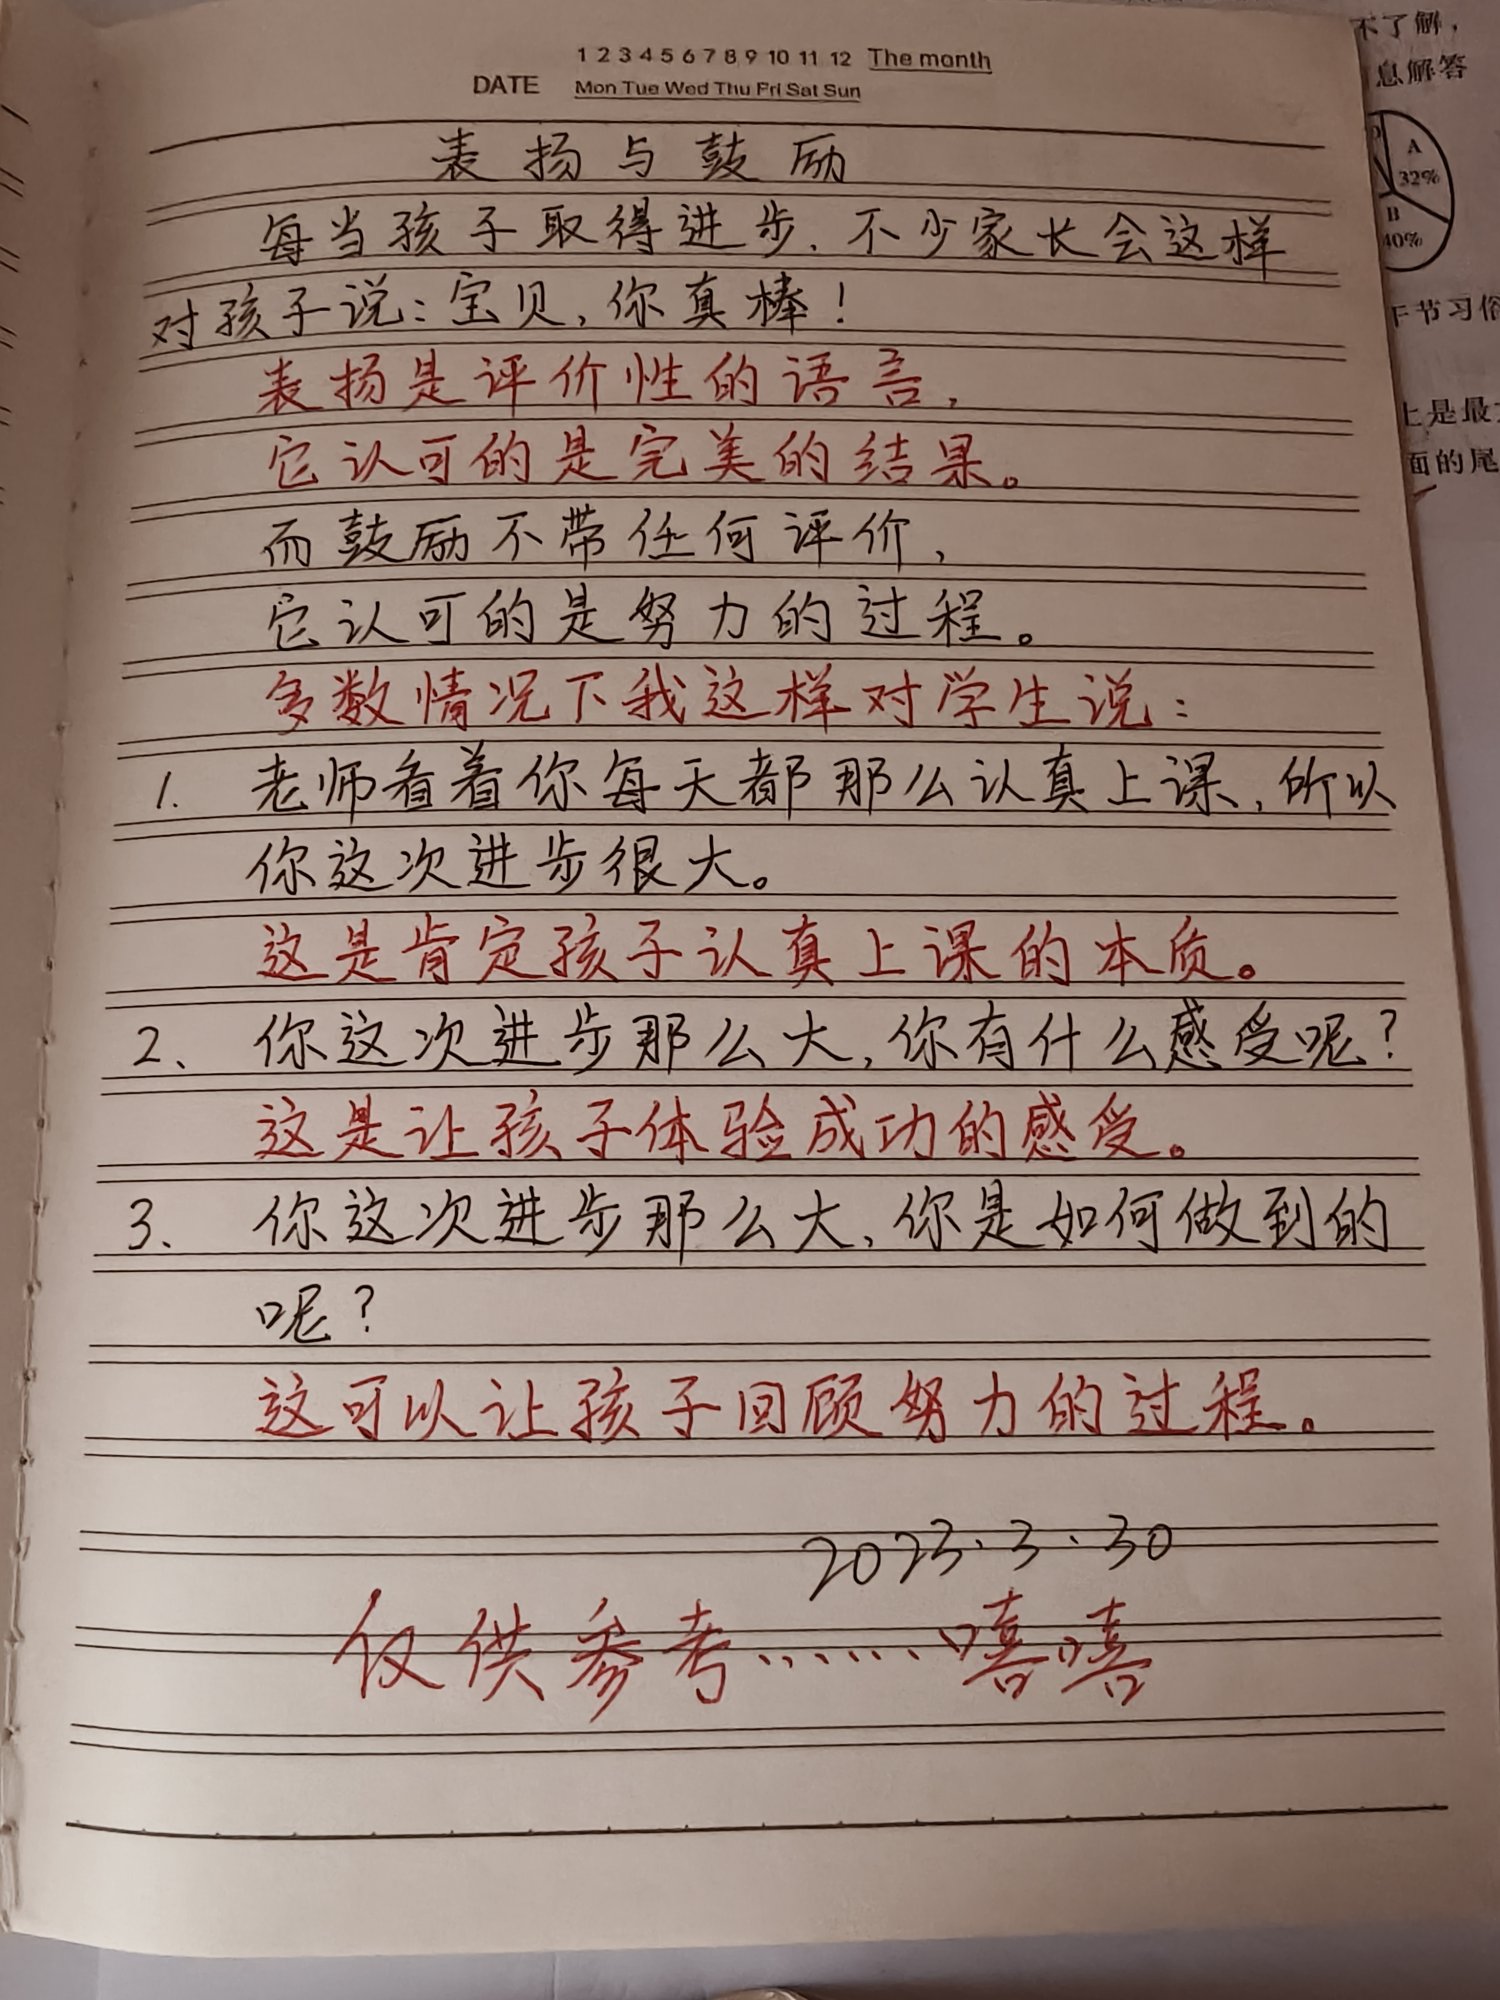 1 2 3 4 5 6 7 8 9 10 11 12 The month
DATE Mon Tue Wed Thu Fri Sat Sun
表扬与鼓励
每当孩子取得进步、不少家长会这样
对孩子说：宝贝，你真棒！
表扬是评价性的语言，
它认可的是完美的结果。
而鼓励不带任何评价，
它认可的是努力的过程。
多数情况下我这样对学生说：
1. 老师看着你每天都那么认真上课，所以
你这次进步很大。
这是肯定孩子认真上课的本质。
2、你这次进步那么大，你有什么感受呢？
这是让孩子体验成功的感受。
3、你这次进步那么大，你是如何做到的
呢？
这可以让孩子回顾努力的过程。
2023.3.30
仅供参考……嘻嘻
不了解，
息解答
A
32%
B
40%
节习俗
上是最
面的尾